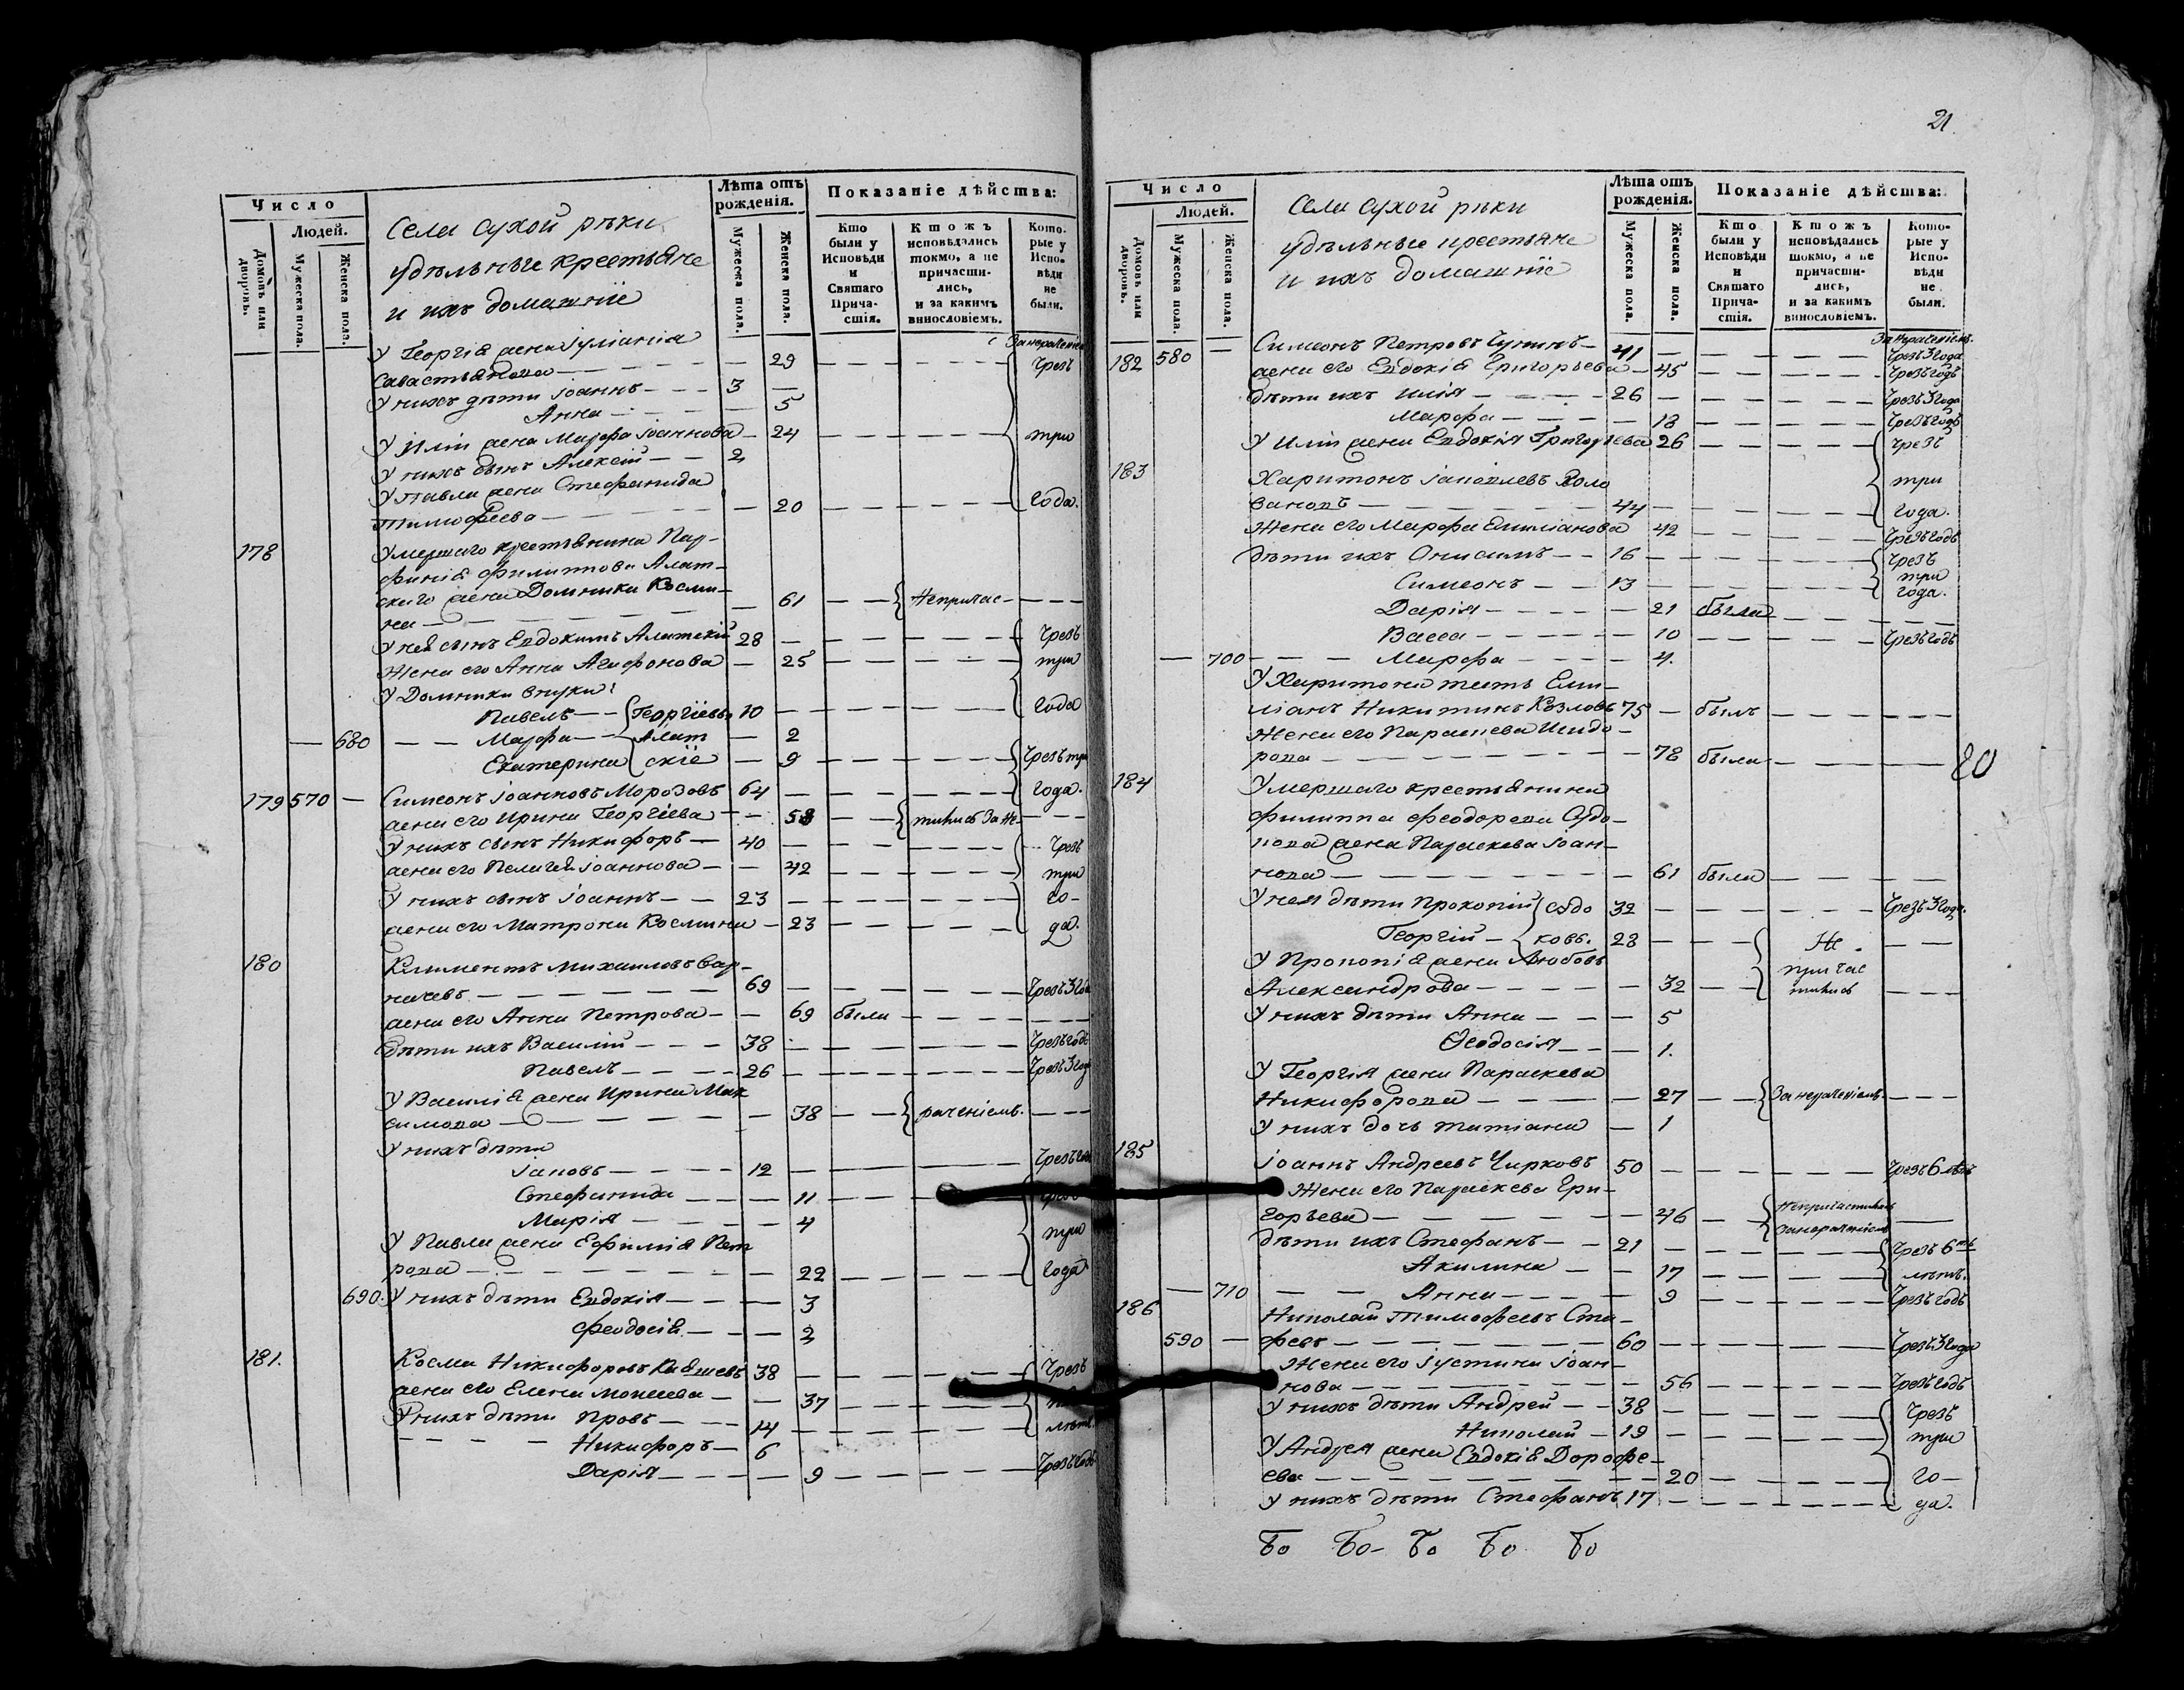 Число
Людей.
Домовъ или дворовъ.
Мужеска пола.
Женска пола.
Села Сухой рѣки
удѣльные крестьяне
и ихъ домашніе
Лѣта отъ рожденія.
Мужеска пола.
Женска пола.
Показаніе дѣйства:
Кто были у Исповѣди и Святаго Прича- стія.
Ктожъ исповѣдались токмо, а не причасти- лись, и за какимъ винословіемъ.
Кото- рые у Испо- вѣди не были.
У Георгія жена Іуліанія
Савастьянова — 29 Чрезъ
У нихъ дѣти Іоаннъ — 3
Анна — 5
У Иліи жена Марфа Іоаннова — 24 три
У нихъ сынъ Алексій — 2
У Павла жена Стефанида
Тимофеева — 20 года.
178 Умершаго крестьянина Пар-
фенія Филиппова Алат-
скаго жена Домника Косми-
на — 61 Непричас-
У нея сынъ Евдокимъ Алатскій 28 Чрезъ
Жена его Анна Агафонова — 25 три
У Домники внуки:
Павелъ — Георгіевы 10 года
680 Марфа — Алат 2
Екатерина скіе — 9 Чрезъ три
179 570 — Симеонъ Іоанновъ Морозовъ 64 года.
жена его Ирина Георгіева — 58 тились За не-
У нихъ сынъ Никифоръ — 40 Чрезъ
жена его Пелагея Іоаннова — 42 три
У нихъ сынъ Іоаннъ — 23 го-
жена его Матрона Космина — 23 да.
180 Климентъ Михаиловъ Вар-
начевъ — 69 Чрезъ 3 года
жена его Анна Петрова — 69 были
Дѣти ихъ Василій — 38 Чрезъ годъ
Павелъ — 26 Чрезъ 3 года
У Василія жена Ирина Мак
симова — 38 раченіемъ.
У нихъ дѣти
Іаковъ — 12 Чрезъ годъ
Стефанида — 11 Чрезъ
Марія — 4 три
У Павла жена Ефимія Пет
рова — 22 года
690. У нихъ дѣти Евдокія — 3
Феодосія — 2
181. Косма Никифоровъ 38 Чрезъ
жена его Елена Моисеева — 37
У нихъ дѣти Провъ — 14 лѣтъ.
Никифоръ — 6
Дарія — 9 Чрезъ годъ
21
Число
Людей.
Домовъ или дворовъ.
Мужеска пола.
Женска пола.
Села Сухой рѣки
удѣльные крестьяне
и ихъ домашніе
Лѣта отъ рожденія.
Мужеска пола.
Женска пола.
Показаніе дѣйства:
Кто были у Исповѣди и Святаго Прича- стія.
Ктожъ исповѣдались токмо, а не причасти- лись, и за какимъ винословіемъ.
Кото- рые у Испо- вѣди не были.
За нераченіемъ.
182 580 — Симеонъ Петровъ Чупинъ — 41 Чрезъ 3 года
жена его Евдокія Григорьева — 45 Чрезъ годъ
Дѣти ихъ Илія — 26 Чрезъ 3 года
Марфа — 18 Чрезъ годъ
У Иліи жена Евдокія Григорьева 26 Чрезъ
183 Харитонъ Іаковлевъ Коло три
вановъ — 44 года.
Жена его Марфа Емиліанова 42 Чрезъ годъ
Дѣти ихъ Онисимъ — 16 Чрезъ
Симеонъ — 13 три года.
Дарія — 21 была
Васса — 10 Чрезъ годъ
— 700 — Марфа — 4.
У Харитона тесть Еми-
ліанъ Никитинъ Козловъ 75 — былъ
Жена его Параскева Исидо-
рова — 78 была
20
184 Умершаго крестьянина
Филиппа Феодорова Судо-
кова жена Параскева Іоан-
нова — 61 была
У нея дѣти Прокопій Судо 32 Чрезъ 3 года.
Георгій — ковы. 28 Не
У Прокопія жена Любовь причас
Александрова — 32 тились
У нихъ дѣти Анна — 5
Ѳеодосія — 1.
У Георгія жена Параскева
Никифорова — 27 За нераченіемъ.
У нихъ дочь Татіана — 1
185 Іоаннъ Андреевъ Чирковъ 50 Чрезъ 6 лѣтъ
Жена его Параскева Гри- Непричастилась
горьева — 46 За нераченіемъ
Дѣти ихъ Стефанъ — 21 Чрезъ 6ть
Акилина — 17 лѣтъ.
— 710 — Анна — 9 Чрезъ годъ
186 Николай Тимофеевъ Ста-
590 — февъ — 60 Чрезъ 3 года
Жена его Іустина Іоан-
нова — 56 Чрезъ годъ
У нихъ дѣти Андрей — 38 Чрезъ
Николай — 19 три
У Андрея жена Евдокія Дорофе-
ева — 20 го-
У нихъ дѣти Стефанъ 17 да.